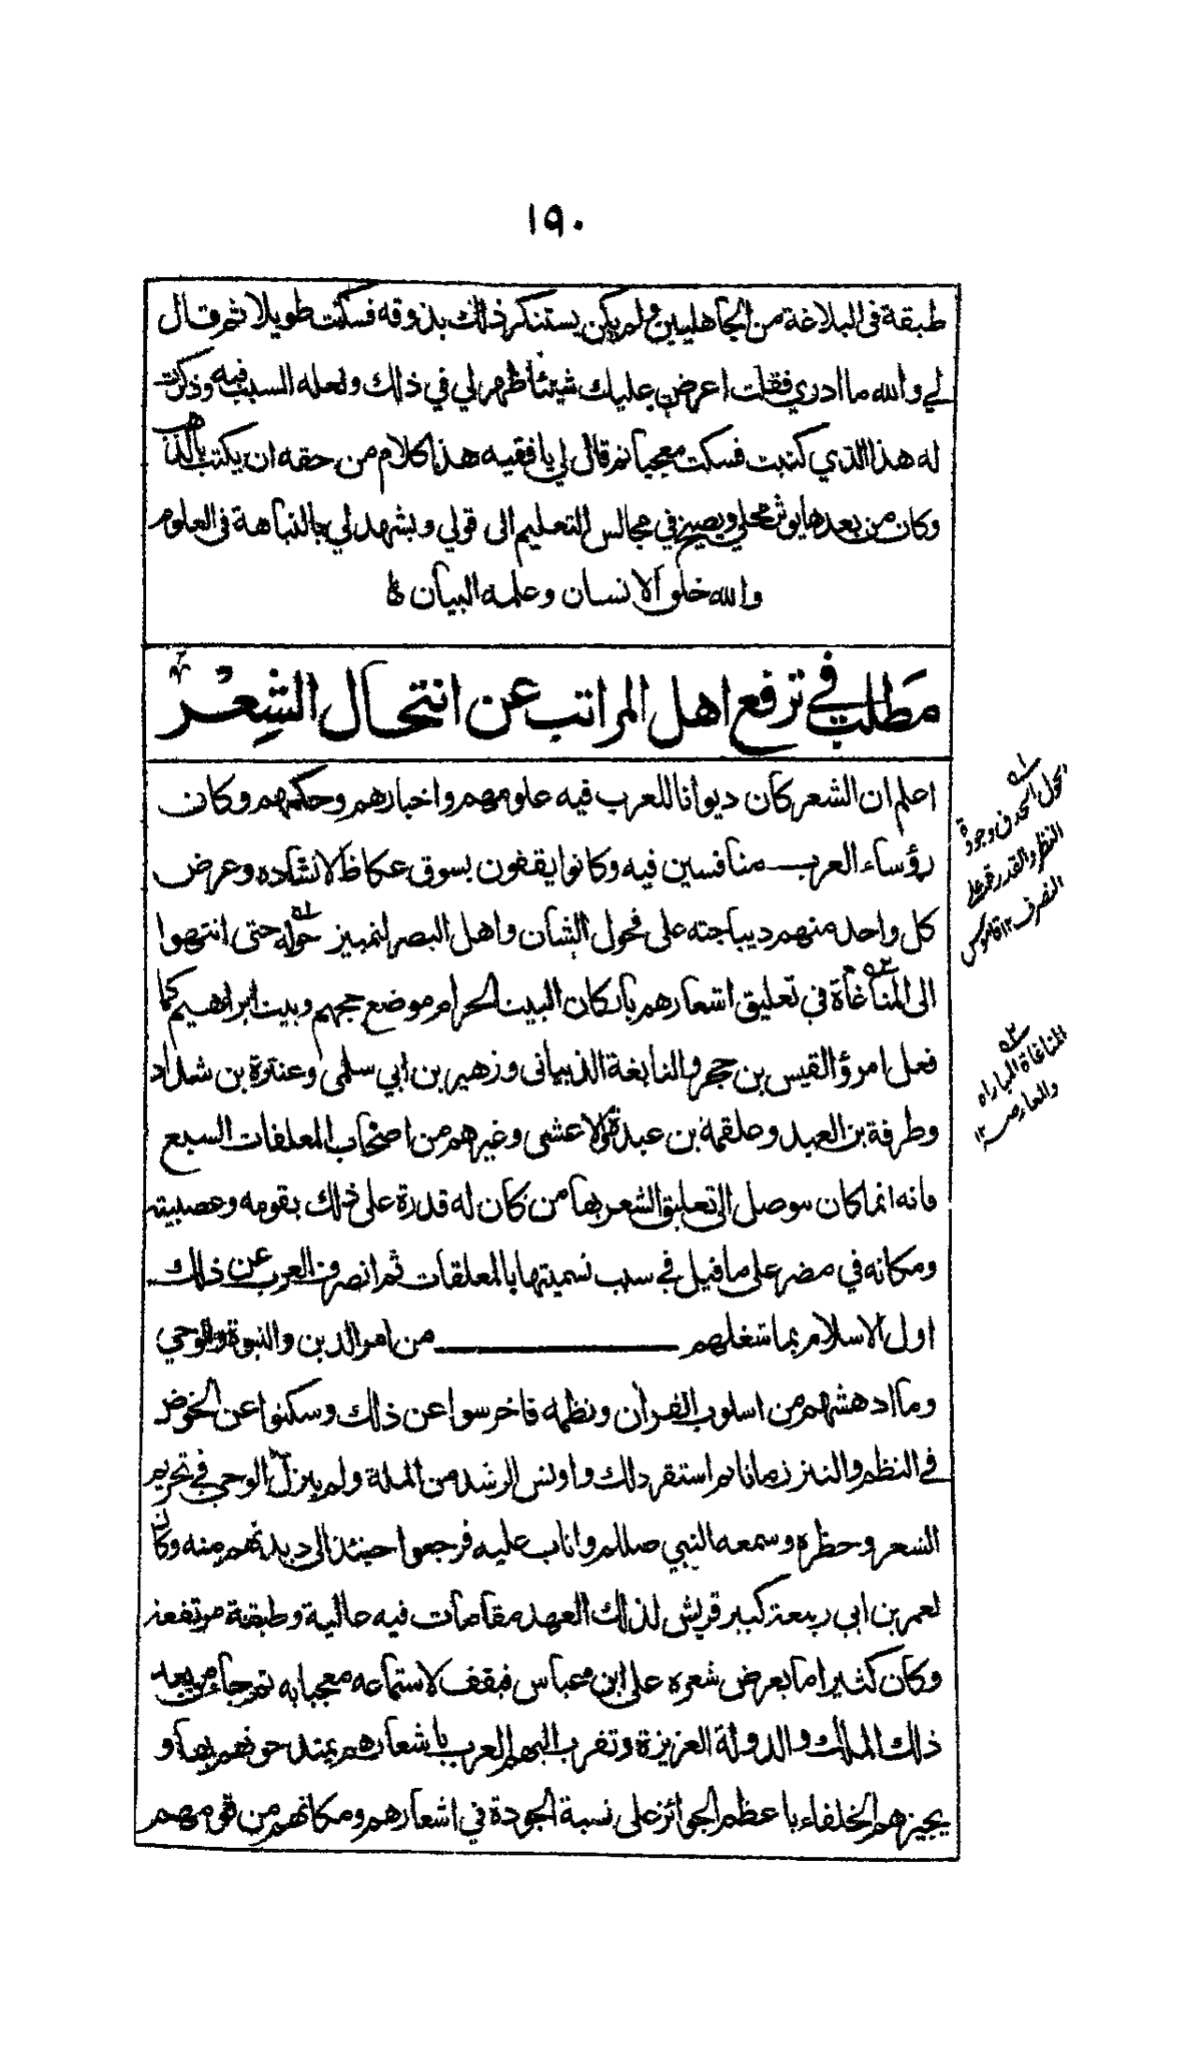 ١٩٠
طبقة في البلاغة من الجاهليين ولم يكن يستنكر ذلك بذوقه فسكت طويلا ثم قال
لي والله ما ادري فقلت اعرض عليك شيئا ظهر لي في ذلك ولعله السبب فيه وذكرت
له هذا الذي كتبت فسكت معجبا ثم قال لي يا فقيه هذا كلام من حقه ان يكتب بالذهب
وكان من بعدها يوثر محلي ويصيخ في مجالس التعليم الى قولي ويشهد لي بالنباهة في العلوم
والله خلق الانسان وعلمه البيان
مَطلب في ترفع اهل المراتب عن انتحال الشِعْر
اعلم ان الشعر كان ديوانا للعرب فيه علومهم واخبارهم وحكمهم وكان
رؤساء العرب منافسين فيه وكانوا يقفون بسوق عكاظ لانشاده وعرض
كل واحد منهم ديباجته على فحول الشان واهل البصر لتمييز حوله حتى انتهوا
الى المناغاة في تعليق اشعارهم باركان البيت الحرام موضع حجهم وبيت ابراهيم كما
فعل امرؤ القيس بن حجر والنابغة الذبياني وزهير بن ابي سلمى وعنترة بن شداد
وطرفة بن العبد وعلقمة بن عبدة والاعشى وغيرهم من اصحاب المعلقات السبع
فانه انما كان يتوصل الى تعليق الشعر بها من كان له قدرة على ذلك بقومه وعصبيته
ومكانه في مضر على ما قيل في سبب تسميتها بالمعلقات ثم انصرف العرب عن ذلك
اول الاسلام بما شغلهم من امر الدين والنبوة والوحي
وما ادهشهم من اسلوب القران ونظمه فاخرسوا عن ذلك وسكتوا عن الخوض
في النظم والنثر زمانا ثم استقر ذلك واونس الرشد من الملة ولم ينزل الوحي في تحريم
الشعر وحظره وسمعه النبي صللم واثاب عليه فرجعوا حينئذ الى ديدنهم منه وكان
لعمر بن ابي ربيعة كبير قريش لذلك العهد مقامات فيه عالية وطبقة مرتفعة
وكان كثيرا ما يعرض شعره على ابن عباس فيقف لاستماعه معجبا به ثم جاء من بعد
ذلك الملك والدولة العزيزة وتقرب اليهم العرب باشعارهم يمتدحونهم بها و
يجيزهم الخلفاء باعظم الجوائز على نسبة الجودة في اشعارهم ومكانهم من قومهم
١
الحول الحذق وجودة
النظر والقدرة على
التصرف ١٢ قاموس
٢
المناغاة المباراه
والمعارضه ١٢